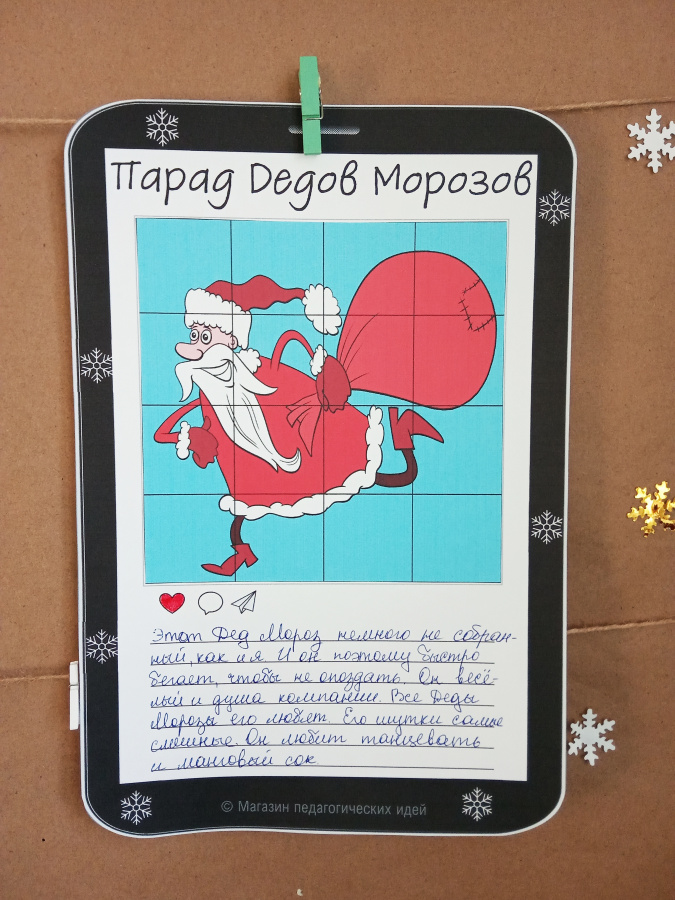 Парад Дедов Морозов
Этот Дед Мороз немного не собран-
ный, как и я. И он поэтому быстро
бегает, чтобы не опоздать. Он весё-
лый и душа компании. Все Деды
Морозы его любят. Его шутки самые
смешные. Он любит танцевать
и манговый сок
© Магазин педагогических идей